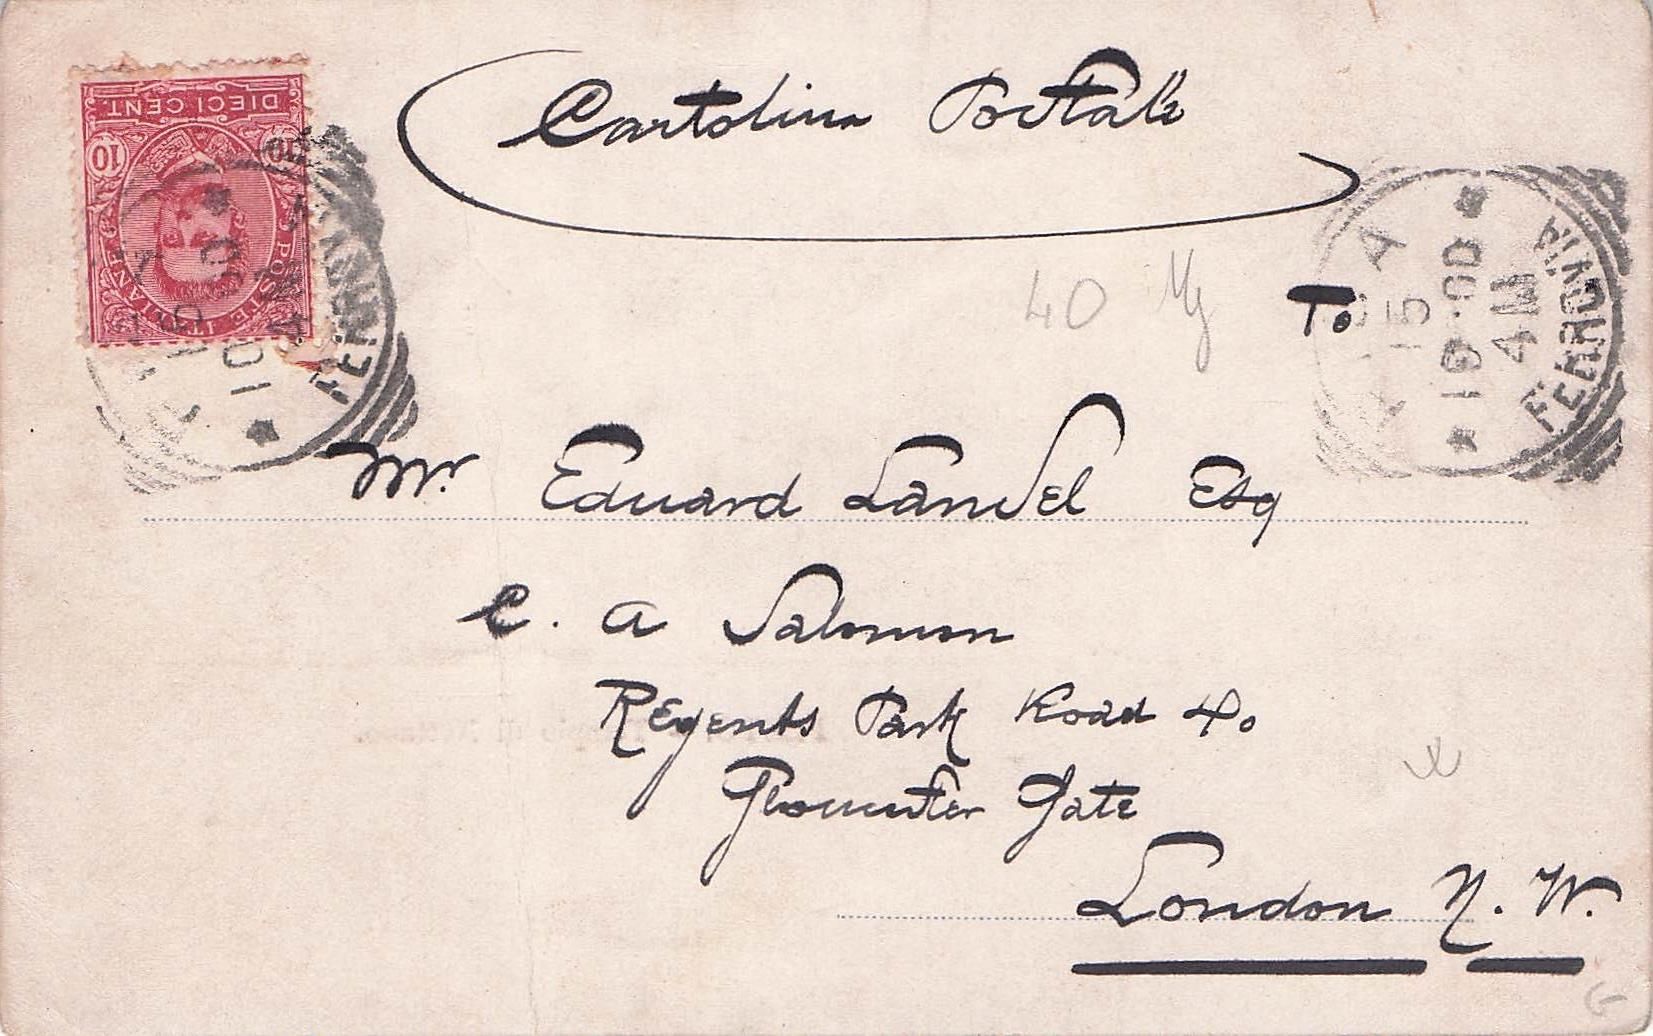 Cartolina Postale
DIECI CENT.
10 10
POSTE ITALIANE
PISA
15
4M
FERROVIA
40
To
Mr. Eduard Landel Esq
C. A Salomon
Regents Park Road 40
Gloucester Gate
London N. W.